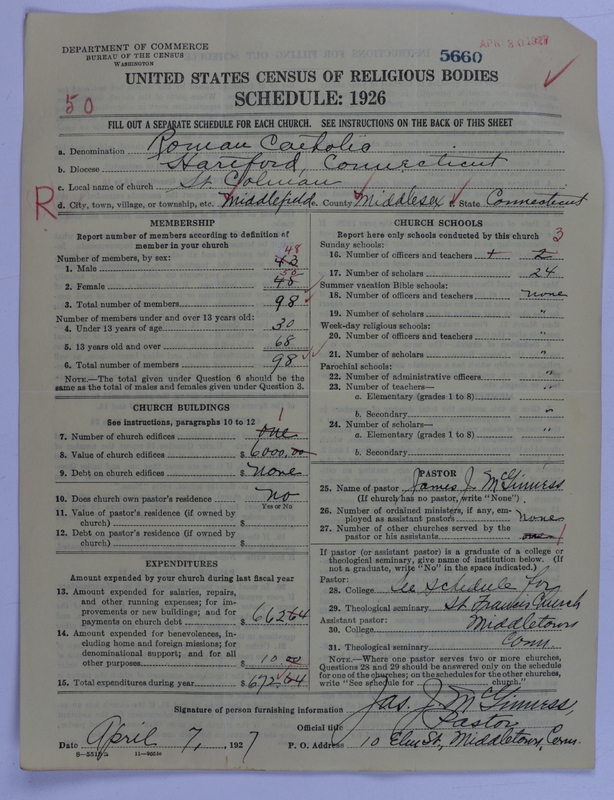 DEPARTMENT OF COMMERCE
BUREAU OF THE CENSUS
WASHINGTON
5660
APR 30 1927
UNITED STATES CENSUS OF RELIGIOUS BODIES
50
SCHEDULE: 1926
FILL OUT A SEPARATE SCHEDULE FOR EACH CHURCH. SEE INSTRUCTIONS ON THE BACK OF THIS SHEET
a. Denomination Roman Catholic
b. Diocese Hartford, Connecticut
c. Local name of church St. Colman
R d. City, town, village, or township, etc. Middlefield e. County Middlesex f. State Connecticut
MEMBERSHIP
Report number of members according to definition of
member in your church
Number of members, by sex: 48
1. Male 43
50
2. Female 48
3. Total number of members 98
Number of members under and over 13 years old:
4. Under 13 years of age 30
5. 13 years old and over 68
6. Total number of members 98
NOTE.—The total given under Question 6 should be the
same as the total of males and females given under Question 3.
CHURCH BUILDINGS
See instructions, paragraphs 10 to 12
1
7. Number of church edifices one
8. Value of church edifices $ 6000.00
9. Debt on church edifices $ None
10. Does church own pastor's residence no
Yes or No
11. Value of pastor's residence (if owned by
church) $
12. Debt on pastor's residence (if owned by
church) $
EXPENDITURES
Amount expended by your church during last fiscal year
13. Amount expended for salaries, repairs,
and other running expenses; for im-
provements or new buildings; and for
payments on church debt $ 662 64
14. Amount expended for benevolences, in-
cluding home and foreign missions; for
denominational support; and for all
other purposes $ 10 00
15. Total expenditures during year $ 672.64
CHURCH SCHOOLS
Report here only schools conducted by this church 3
Sunday schools:
16. Number of officers and teachers 2
17. Number of scholars 24
Summer vacation Bible schools:
18. Number of officers and teachers none
19. Number of scholars "
Week-day religious schools:
20. Number of officers and teachers "
21. Number of scholars "
Parochial schools:
22. Number of administrative officers "
23. Number of teachers—
a. Elementary (grades 1 to 8) "
b. Secondary "
24. Number of scholars—
a. Elementary (grades 1 to 8) "
b. Secondary
PASTOR
25. Name of pastor James J. McGinness
(If church has no pastor, write "None")
26. Number of ordained ministers, if any, em-
ployed as assistant pastors None
27. Number of other churches served by the
pastor or his assistants one 1
If pastor (or assistant pastor) is a graduate of a college or
theological seminary, give name of institution below. (If
not a graduate, write "No" in the space indicated.)
Pastor:
28. College See Schedule for
29. Theological seminary St. Francis Church
Assistant pastor: Middletown
30. College
31. Theological seminary Conn
NOTE.—Where one pastor serves two or more churches,
Questions 28 and 29 should be answered only on the schedule
for one of the churches; on the schedules for the other churches,
write "See schedule for church."
Signature of person furnishing information Jas. J. McGinness
Official title Pastor
Date April 7, 1927 P. O. Address 10 Elm St., Middletown, Conn.